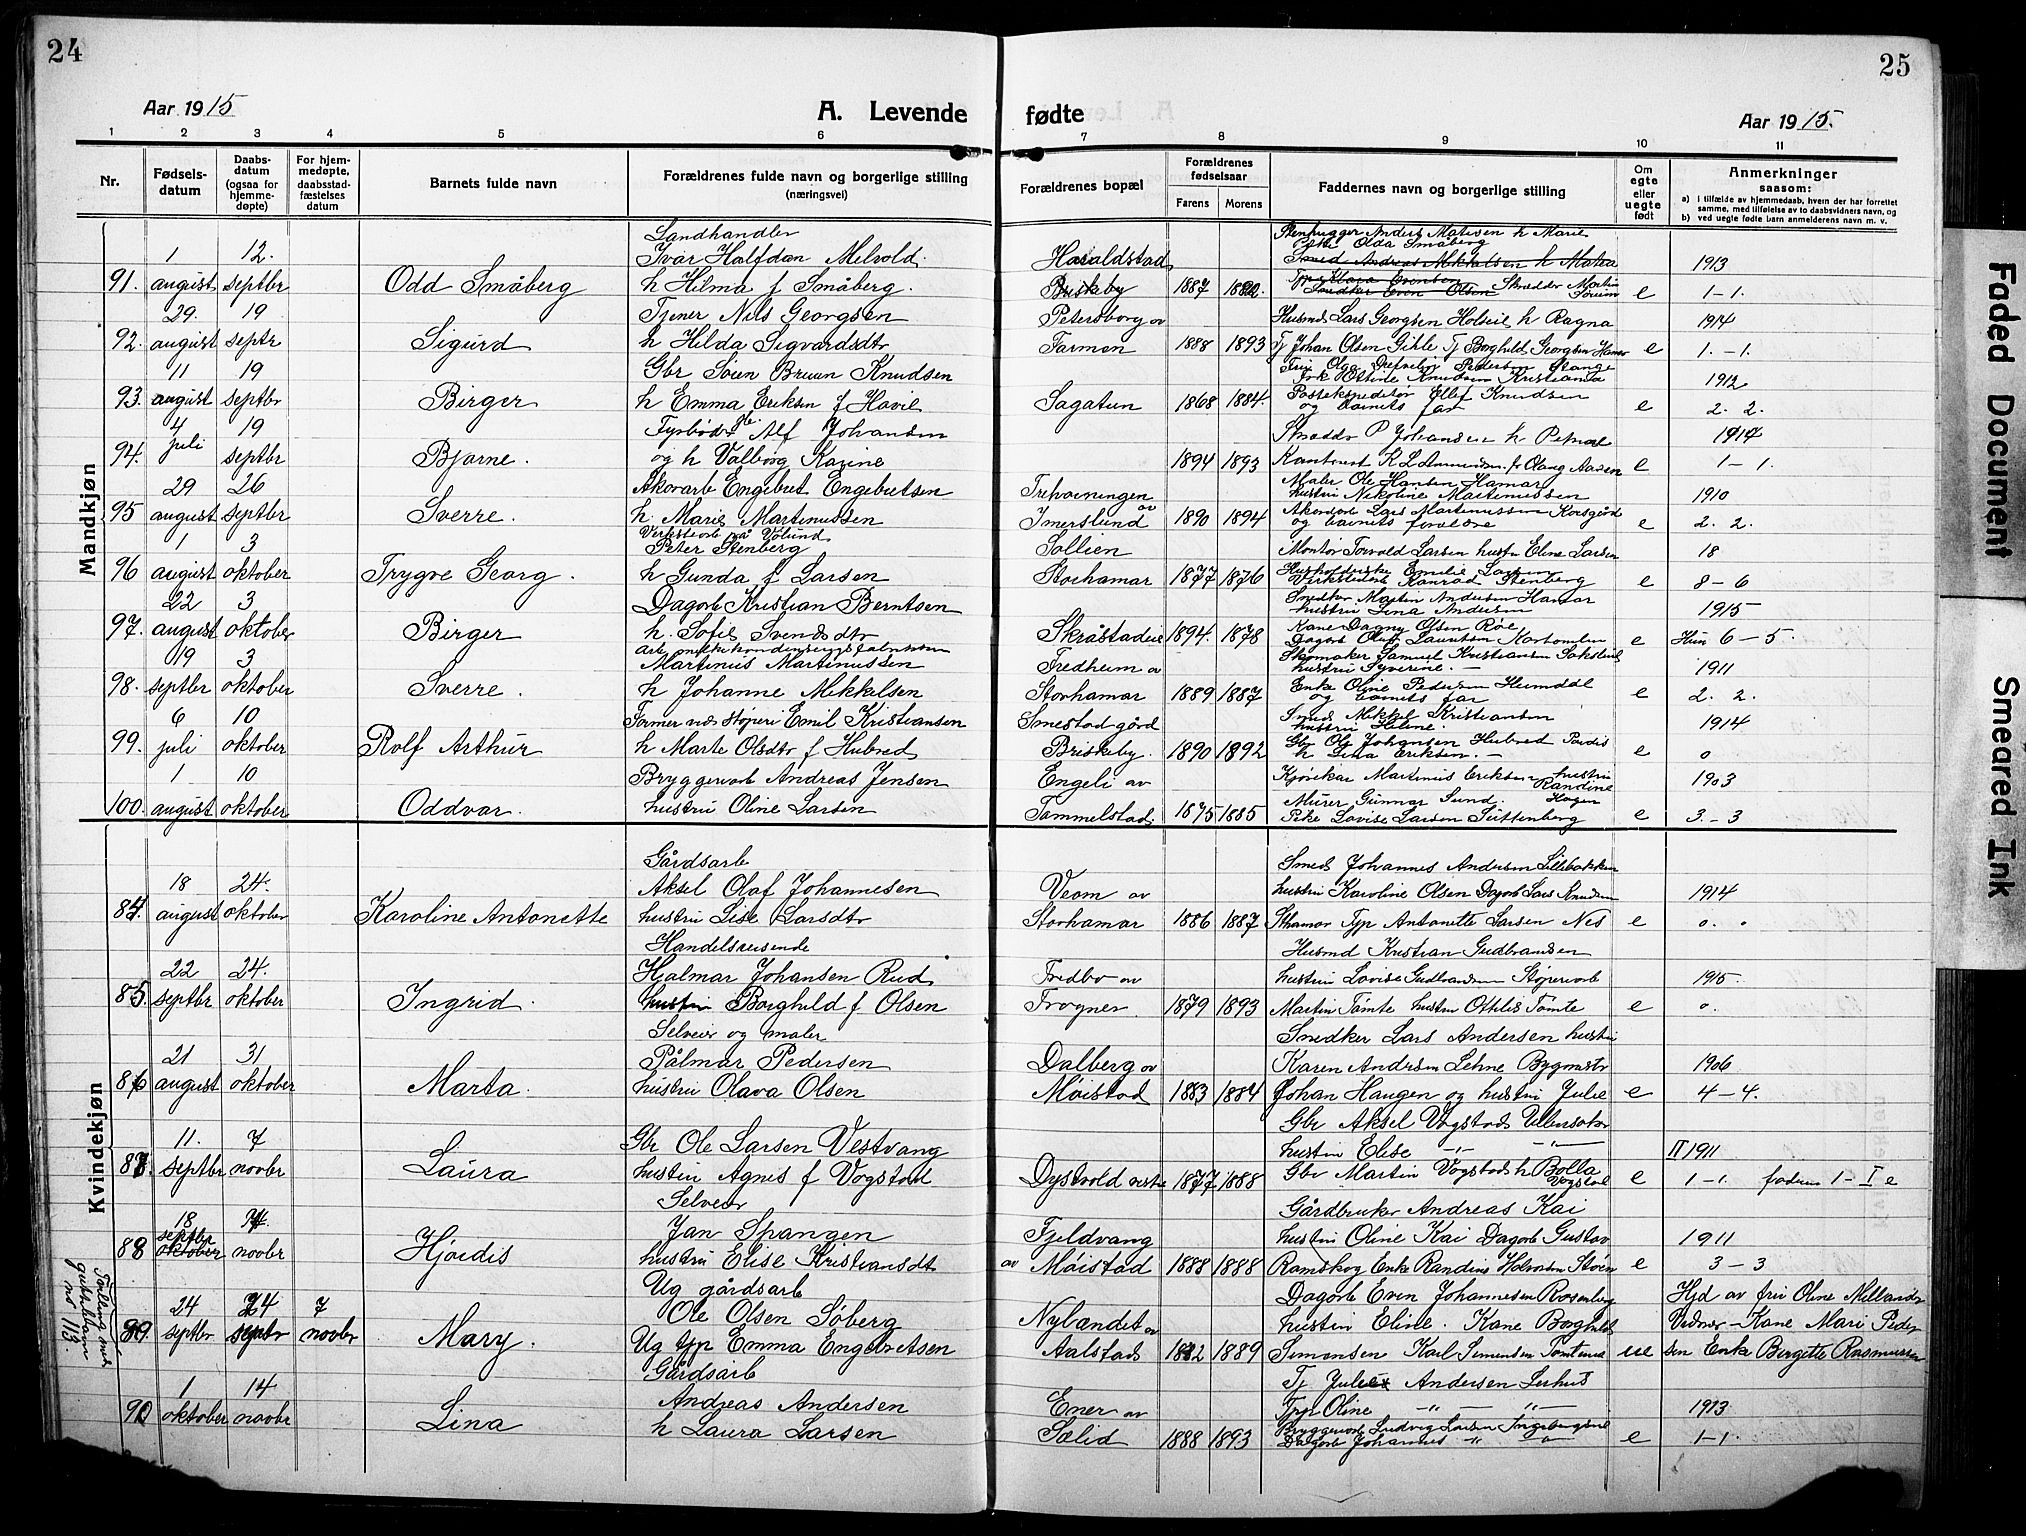 24
Aar 1915
A. Levende
1 2 3 4 5 6
Nr.
Fødselsdatum
Daabsdatum (ogsaa for hjemmedøpte)
For hjemmedøpte, daabsstadfæstelses datum
Barnets fulde navn
Forældrenes fulde navn og borgerlige stilling (næringsvei)
Mandkjøn
91. 1 august 12. septbr Odd Småberg
Landhandler
Ivar Halfdan Melvold.
h Hilma f Småberg.
92. 29. august 19 septr Sigurd
Tjener Nils Georgsen
h Hilda Sigvardsdtr
93. 11 august 19 septbr Birger
Gbr Sven Bruun Knudsen
h Emma Eriksen f Havil
94. 4 juli 19 septbr Bjarne.
Fyrbøder Alf Johansen
og h Valborg Karine
95 29 august 26 septbr Sverre.
Akorarb Engebret Engebretsen
h. Marie Martinussen
96 1 august 3 oktober Trygve Georg.
Verkstarb på Vølund
Peter Stenberg
h Gunda f Larsen
97. 22 august 3 oktober Birger
Dagarb Kristian Berntsen
h. Sofie Svendsdtr
98. 19 septbr 3 oktober Sverre.
Martinius Martinussen
h Johanne Mikkelsen
99. 6 juli 10 oktober Rolf Arthur
Former ved støperi Emil Kristiansen
h Marte Olsdtr f Hubred
100. 1 august 10 oktober Oddvar.
Bryggerarb Andreas Jensen
hustru Oline Larsen
Kvindekjøn
84. 18 august 24. oktober Karoline Antonette
Gårdsarb
Aksel Olaf Johannesen
hustru Lise Larsdtr
85. 22 septbr 24. oktober Ingrid.
Handelsreisende
Halmar Johansen Rud
hustru Borghild f Olsen
86 21 august 31 oktober Marta.
Selveier og maler
Pålmar Pedersen
hustru Olava Olsen
87. 11. septbr 7 novbr Laura
Gbr Ole Larsen Vestvang
hustru Agnes f Vogstad
88 18 septbr oktober novbr Hjørdis
Selveier
Jan Spangen
hustru Elise Kristiansdtr
Tvilling med guttebarn no 113.
89. 24 septbr 24 septbr 7 novbr Mary.
Ug gårdsarb
Ole Olsen Søberg
Ug tpp Emma Engebretsen
90 1 oktober 14 novbr Lina
Gårdsarb
Andreas Andersen
h Laura Larsen
25
fødte
Aar 1915.
7 8 9 10 11
Forældrenes bopæl
Forældrenes fødselsaar
Farens Morens
Faddernes navn og borgerlige stilling
Om egte eller uegte født
Anmerkninger
saasom:
a) i tilfælde av hjemmedaab, hvem der har forrettet samme, med tilføielse av to daabsvidners navn, og
b) ved uegte fødte barn anmelderens navn m. v.
Haraldstad
Briskeby 1887
Stenhugger Anders Matisen h Marie
Pike Olda Småberg
Smed Andreas Mikkelsen h Matea
Snedker Even Olsen Skredder Martin
e 1913 1-1.
Petersborg av
Farmen 1888 1893
Husmd Lars Georgsen Holseil h Ragna
Tj Johan Olsen Gitle Tj Borghild Georgsen Hamar
e 1914 1.-1.
Sagatun 1868 1884.
Postekspeditør Ellef Knudsen
og barnets far
e 1912 2. 2.
1894 1893
e 1-1.
Imerslund 1890 1894
Maler Ole Hansen Hamar
hustru Nikoline Martinussen
Akordarb Lars Martinussen Korsgård
og barnets forældre
e 1910 2. 2.
Sollien
Storhamar 1877 1876
Montør Torvald Larsen hustru Eline Larsen
Konrad Stenberg
e 18 8-6
1894. 1878
Snedker Martin Andersen Hamar
hustru Lina Andersen
Kane Dagny Olsen Røe
e 1915 Hun 6-5.
Fredheim av
Storhamar 1889 1887
Skomaker Samuel Kristiansen
hustru Syverine
Enke Oline Pedersen
og barnets far
e 1911 2. 2.
Smestad gård
Briskeby. 1890 1892
Smed Mikkel Kristiansen
hustru Helene.
Gbr Ole Johansen Hubred
h Lina Eriksen
e 1914 0
Engeli av
Tammelstad 1875 1885
Martinius Eriksen hustru Randine
Murer Gunnar Lund. Hagen
Pike Lovise Larsen
e 1903 3.-3
Veom av
Storhamar 1886 1887
Smed Johannes Andersen Lillebakken
hustru Karoline Olsen Dagarb Lars Knudsen
Sthamar Tpp Antonette Larsen Nes
e 1914 0.
Fredbo av
Frogner. 1879 1893
Husmd Kristian Gudbrandsen
hustru Lovise Gudbrandsen Støperarb
Martin Tømte hustru Ottilie Tømte
e 1915. 0.
Dalberg av
Møistad 1883 1884
Snedker Lars Andersen hustru
Karen Andersen Lehne Bygmstr
Johan Haugen og hustru Julie
e 1906 4-4.
Dystvold 1877 1888
Gbr Aksel Vogstad Ullensaker
hustru Elise
Gbr Martin Vogstad h Bolla
Vogstad
e II 1911 1-1. faderen 1-I e
Fjeldvang
av Møistad 1888 1888
Gårdbruker Andreas Kai
hustru Oline Kai Dagarb Gustav
Ramskog Enke Randine Halvorsen Støen
e 1911 3-3
Nylandet av
Aalstad 1882 1889
Dagarb Even Johannesen Rosenberg
hustru Eline. Kane Borghild
Simensen Karl Simensen Tomtene
ue
Hjd av frøi Oline Millander
Vidner-Kane Mari Pedersen Enke Birgette Rasmussen
Ener av
Sælid 1888 1893
Tj Julie Andersen Lerhus
Tpp Oline
Bryggerarb Ludvig Larsen
Dagarb Johannes
e 1913 1-1.
Faded Document
Smeared Ink